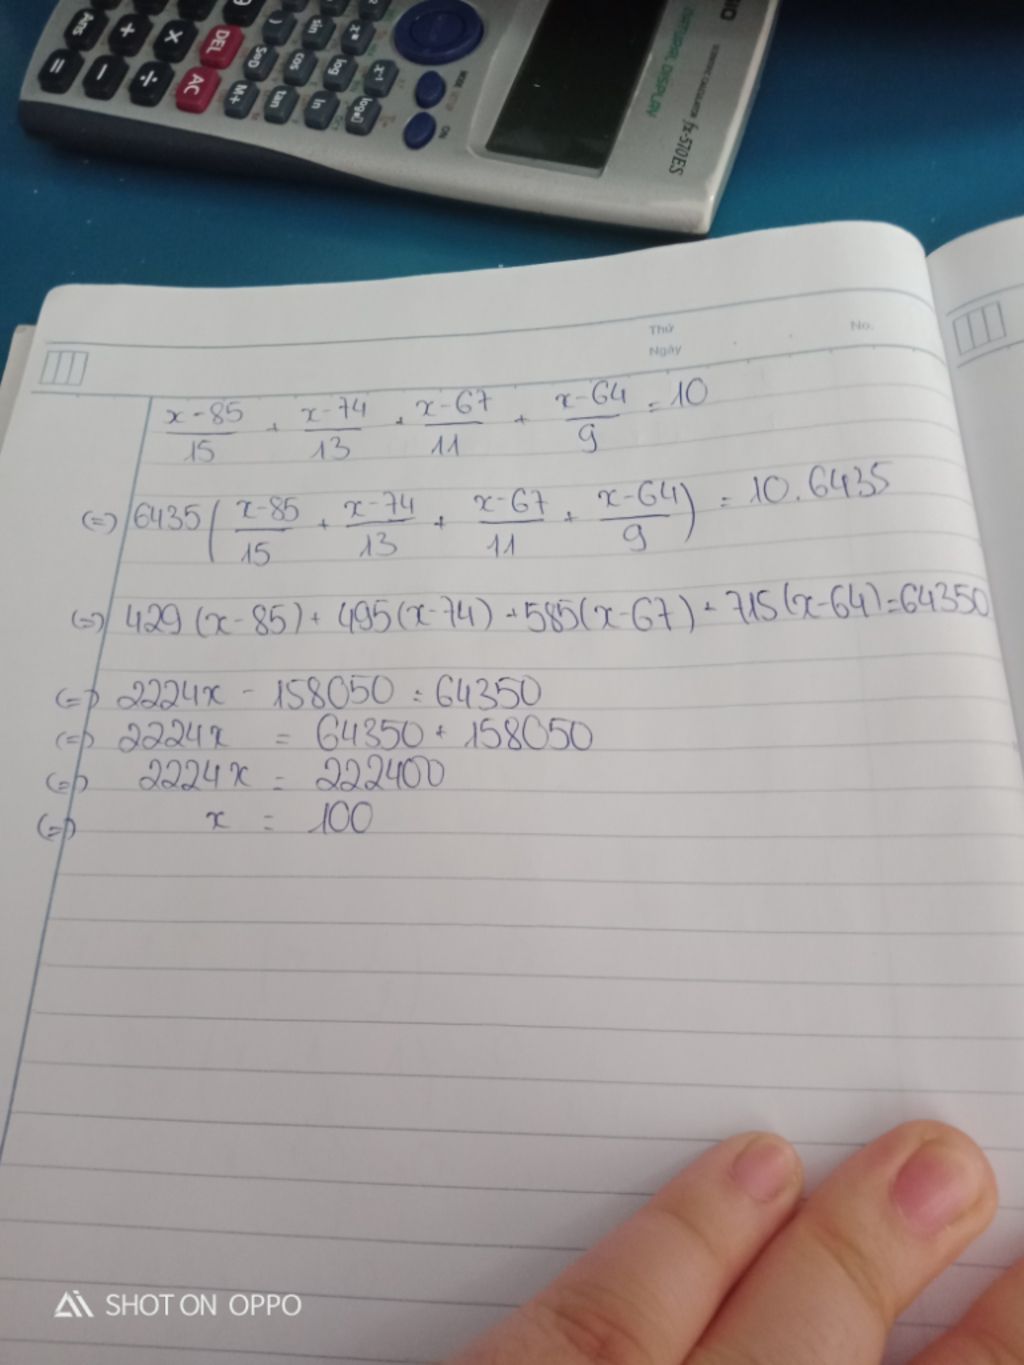 Ans + × DEL ) sin x■ 
= − ÷ AC M+ S⇔D tan cos ln log x⁻¹ log■□
MODE ON
NATURAL DISPLAY
fx-570ES
Thứ No.
Ngày
x-85/15 + x-74/13 + x-67/11 + x-64/9 = 10
(=) 6435(x-85/15 + x-74/13 + x-67/11 + x-64/9) = 10.6435
(=) 429(x-85) + 495(x-74) + 585(x-67) + 715(x-64) = 64350
(=) 2224x - 158050 = 64350
(=) 2224x = 64350 + 158050
(=) 2224x = 222400
(=) x = 100
SHOT ON OPPO